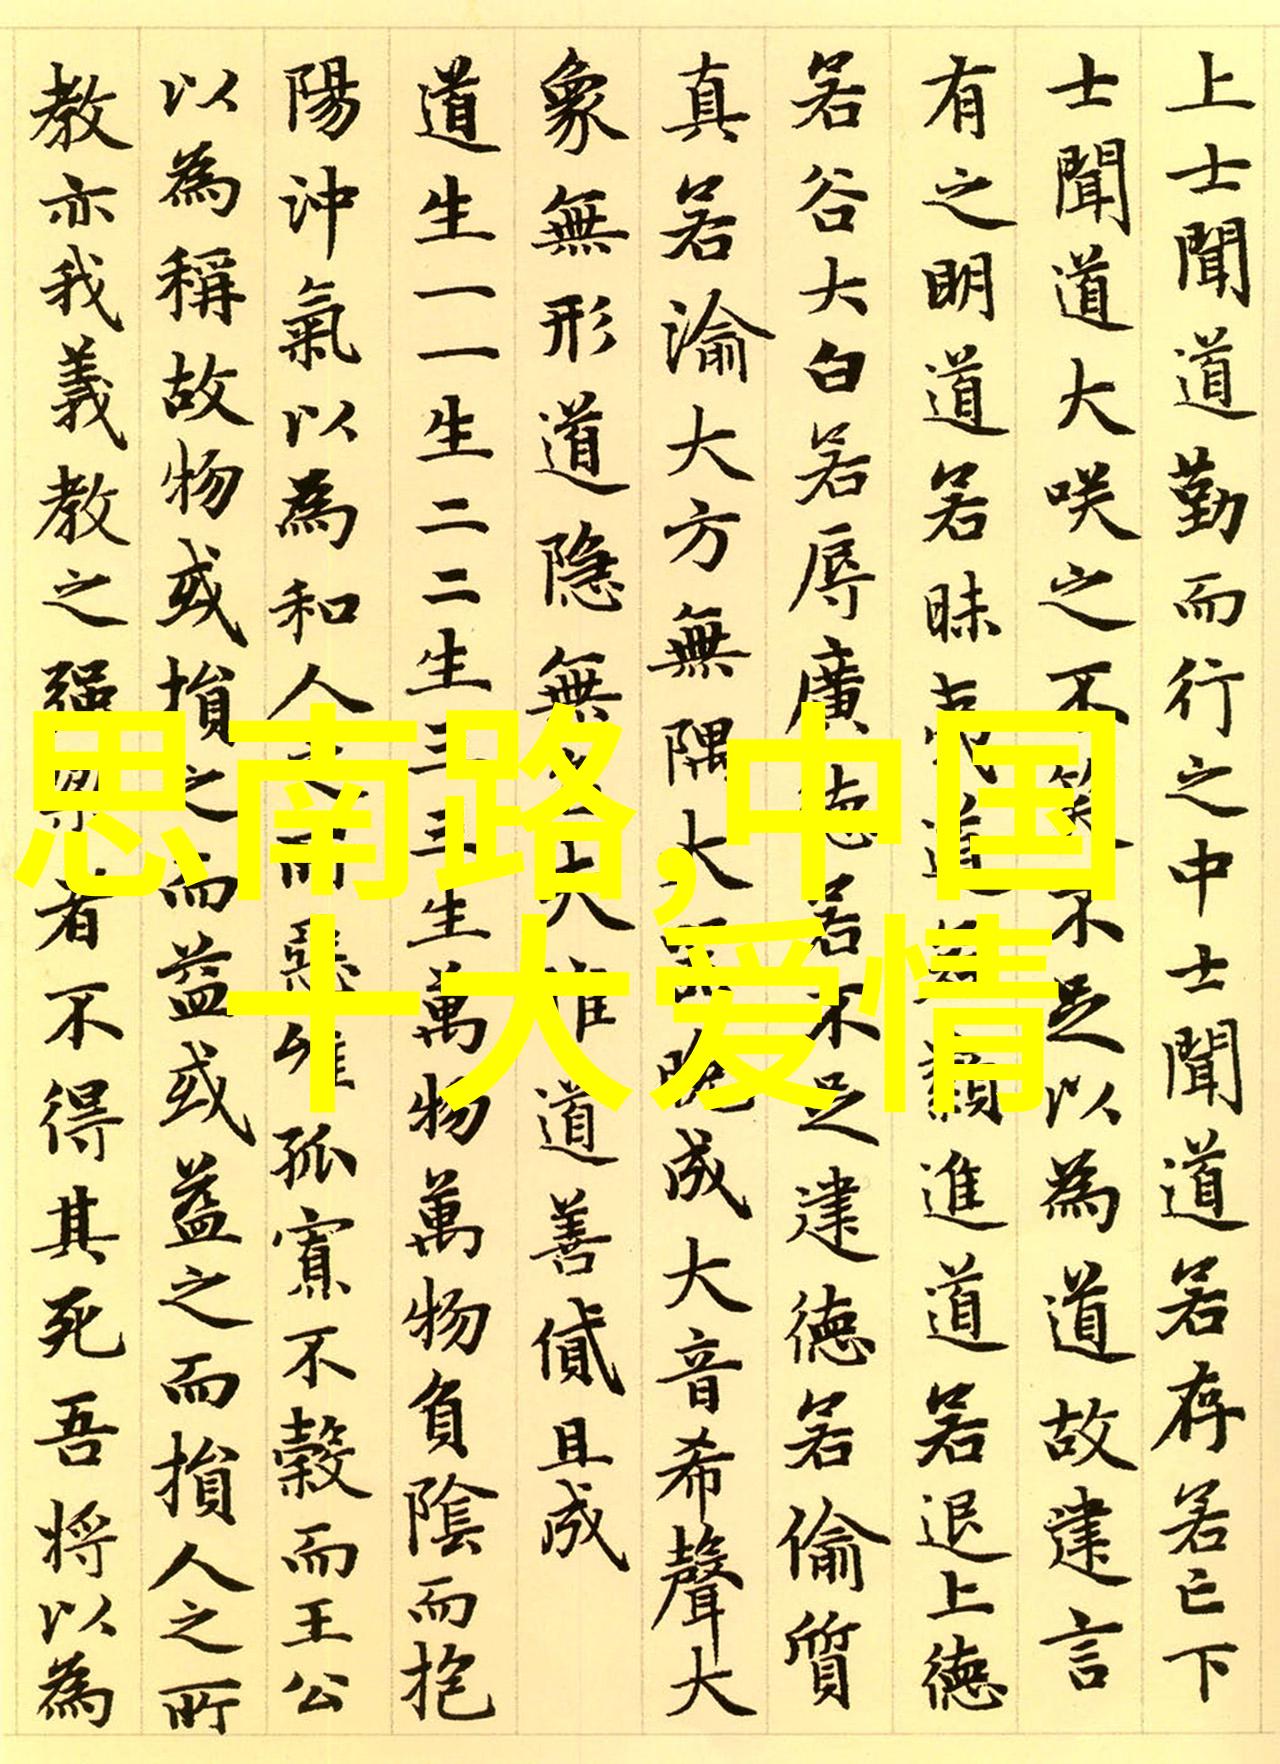 上士聞道勤而行之中士聞道若存若亡下
士聞道大咲之不笑不足以為道故建言
有之明道若昧夷道若類進道若退上德
若谷大白若辱廣德若不足建德若偷質
真若渝大方無隅大器晚成大音希聲大
象無形道隐無名夫唯道善貸且成
道生一一生二二生三三生萬物萬物負陰而抱
陽沖氣以為和人之所惡唯孤寡不穀而王公
以為稱故物或損之而益或益之而損人之所
教亦我義教之强梁者不得其死吾将以為
思南路,中国
十大爱情